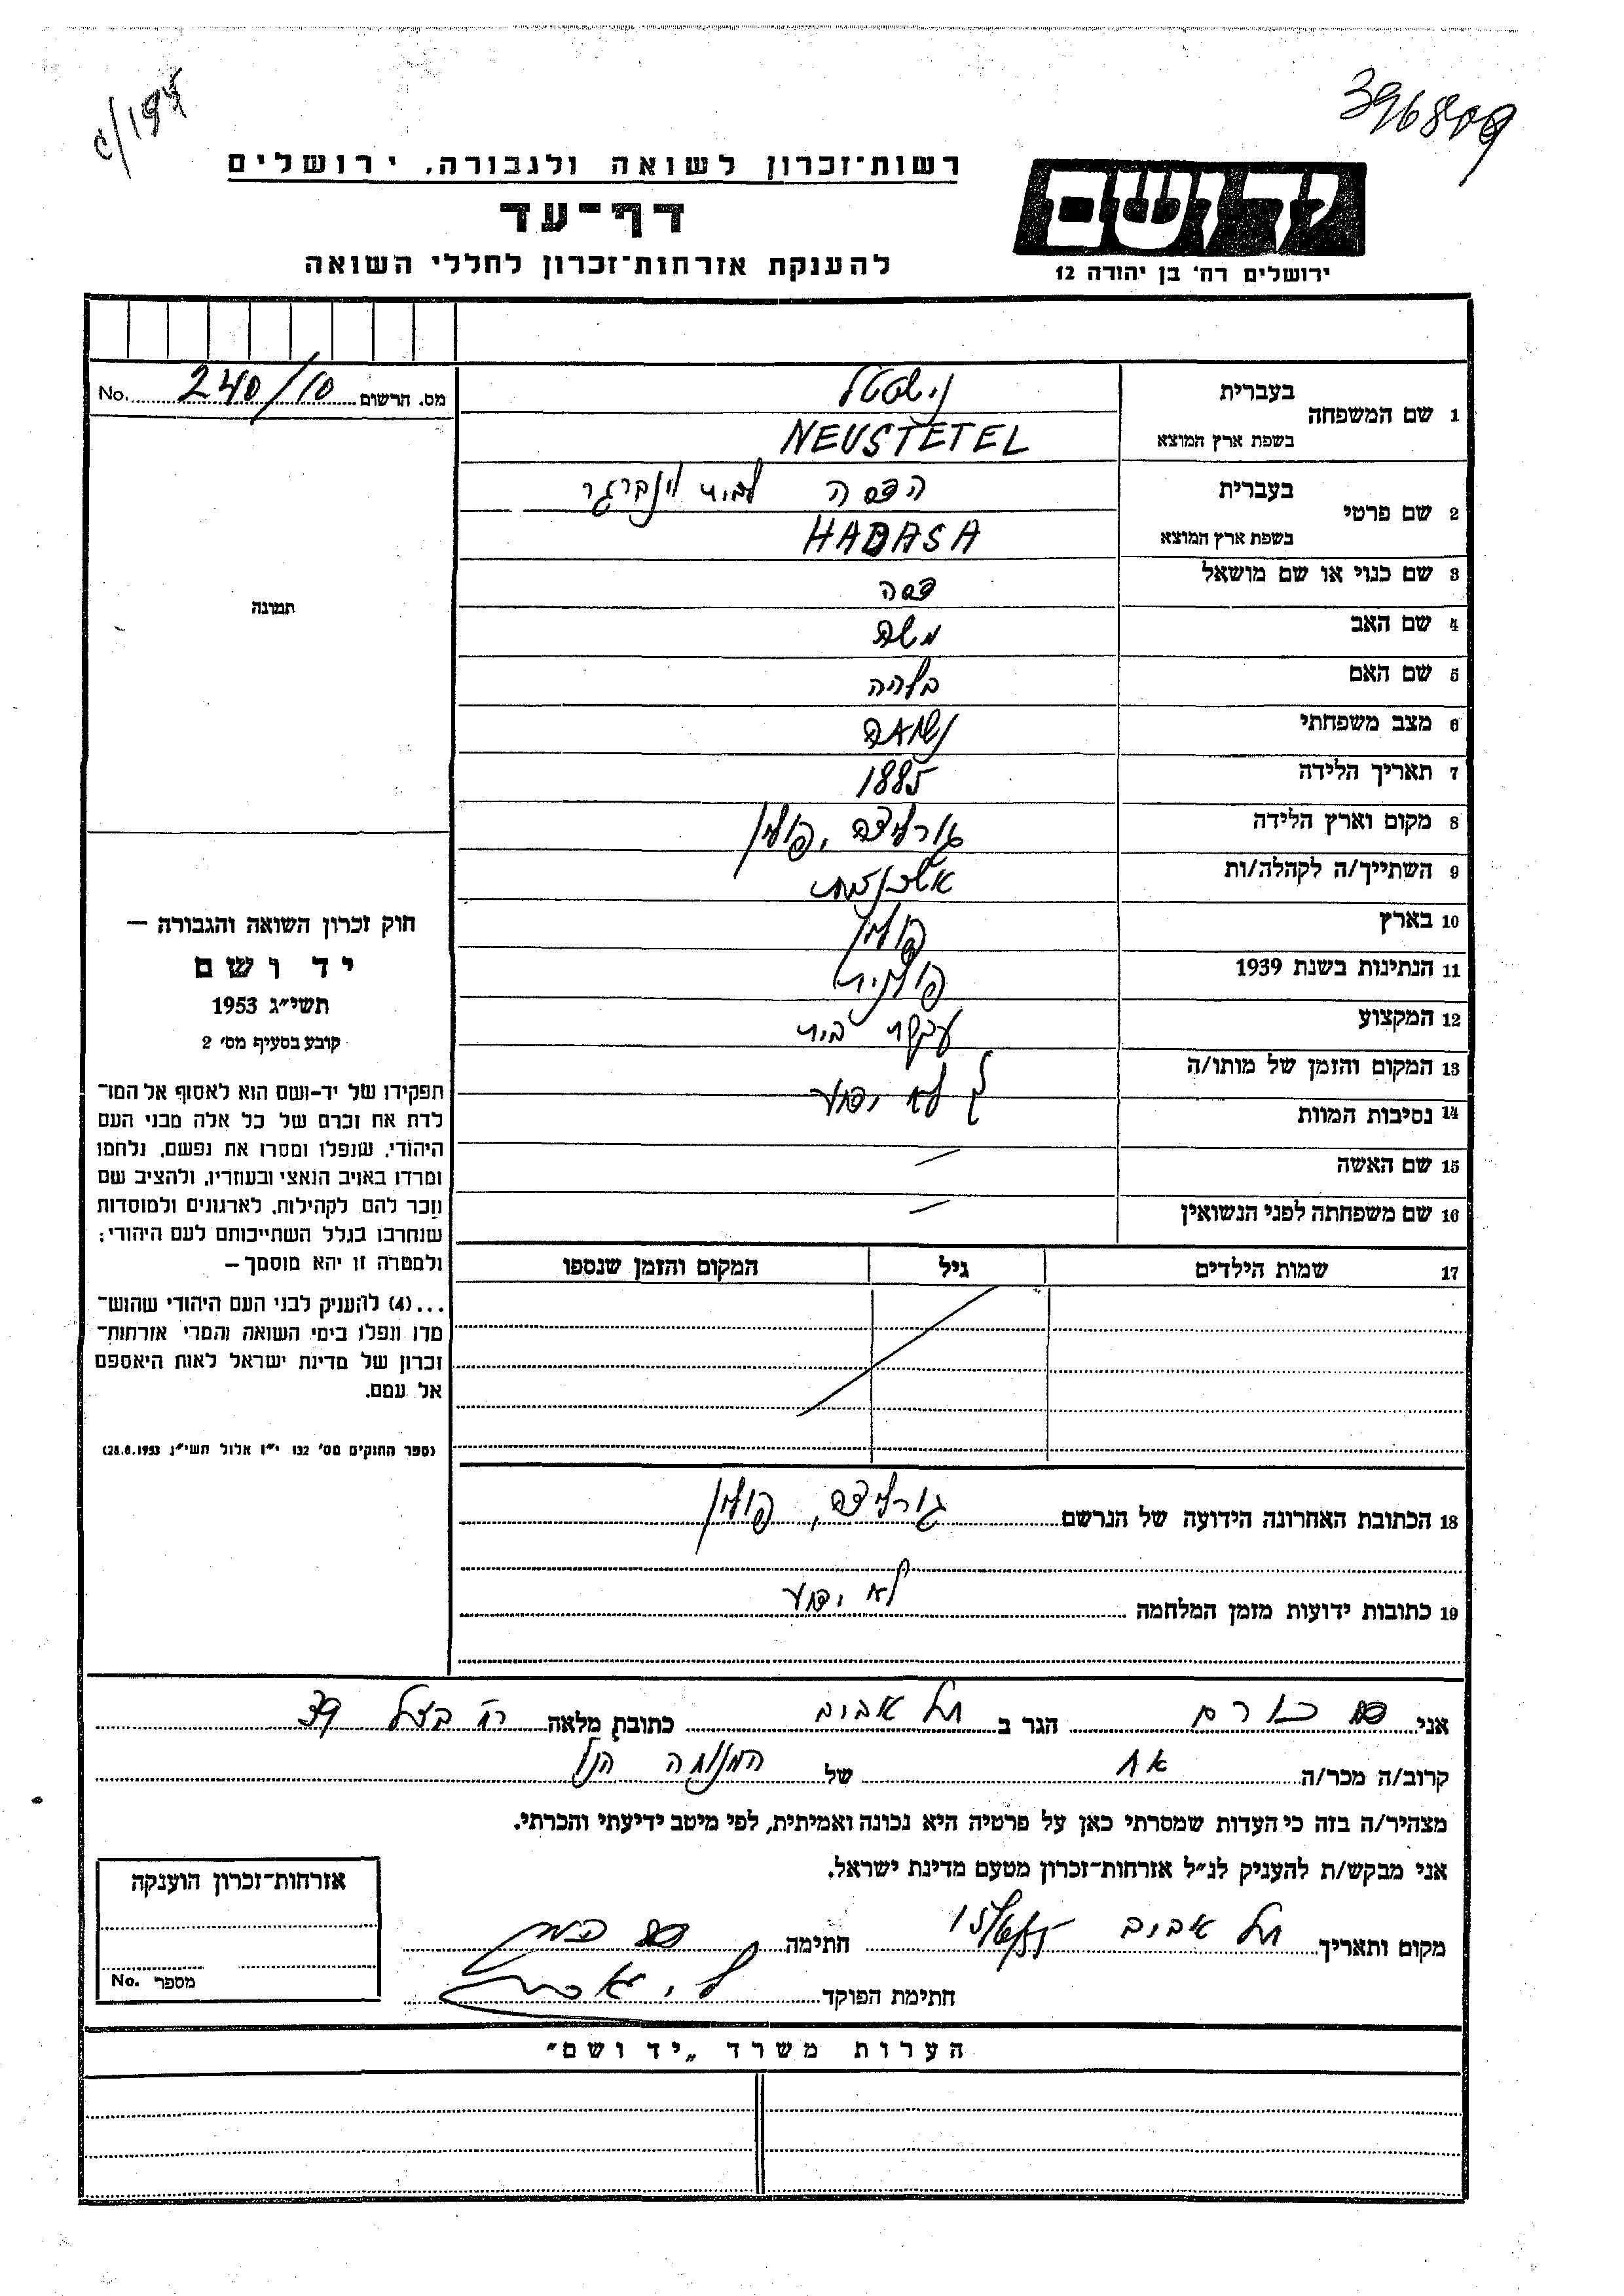 396809
רשות־זכרון לשואה ולגבורה, ירושלים
דף־עד
להענקת אזרחות־זכרון לחללי השואה
ידושם
ירושלים רח׳ בן יהודה 12
מס. הרשום 240/10 No.
1 שם המשפחה
בעברית
בשפת ארץ המוצא NEUSTETEL
2 שם פרטי
בעברית הדסה לבית וינברגר
בשפת ארץ המוצא HADASA
3 שם כנוי או שם מושאל דסה
4 שם האב משה
5 שם האם בלהה
6 מצב משפחתי נשואה
7 תאריך הלידה 1885
8 מקום וארץ הלידה גורליצה, פולין
9 השתייך/ה לקהלה/ות אשכנזית
10 בארץ פולין
11 הנתינות בשנת 1939 פולנית
12 המקצוע עקרת בית
13 המקום והזמן של מותו/ה
14 נסיבות המוות לא ידוע
15 שם האשה —
16 שם משפחתה לפני הנשואין —
17 שמות הילדים גיל המקום והזמן שנספו
18 הכתובת האחרונה הידועה של הנרשם גורליצה, פולין
19 כתובות ידועות מזמן המלחמה לא ידוע
תמונה
חוק זכרון השואה והגבורה —
יד ושם
תשי״ג 1953
קובע בסעיף מס׳ 2
תפקידו של יד-ושם הוא לאסוף אל המו־
לדת את זכרם של כל אלה מבני העם
היהודי, שנפלו ומסרו את נפשם, נלחמו
ומרדו באויב הנאצי ובעוזריו, ולהציב שם
וזכר להם לקהילות, לארגונים ולמוסדות
שנחרבו בגלל השתייכותם לעם היהודי;
ולמטרה זו יהא מוסמך —
...(4) להעניק לבני העם היהודי שהוש־
מדו ונפלו בימי השואה והמרי אזרחות־
זכרון של מדינת ישראל לאות היאספם
אל עמם.
(ספר החוקים מס׳ 132 י״ז אלול תשי״ג 28.8.1953)
אני הגר ב תל אביב כתובת מלאה רח׳ בצלאל 39
קרוב/ה מכר/ה אח של המנוחה הנ״ל
מצהיר/ה בזה כי העדות שמסרתי כאן על פרטיה היא נכונה ואמיתית, לפי מיטב ידיעתי והכרתי.
אני מבקש/ת להעניק לנ״ל אזרחות־זכרון מטעם מדינת ישראל.
מקום ותאריך תל אביב חתימה
חתימת הפוקד
אזרחות־זכרון הוענקה
מספר No.
הערות משרד „יד ושם״